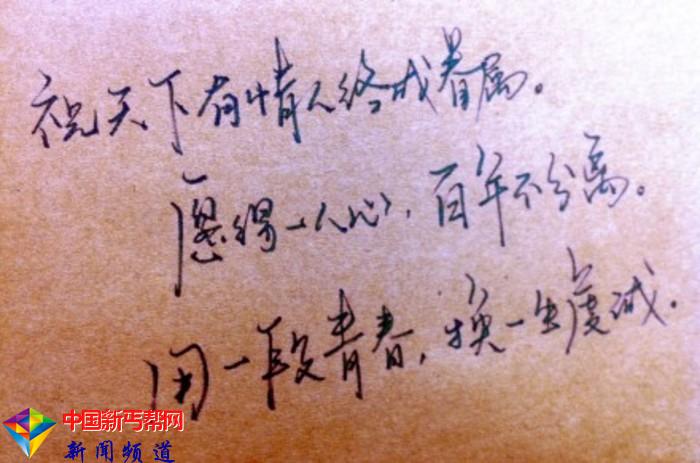 祝天下有情人终成眷属。
愿得一人心，百年不分离。
用一段青春，换一生虔诚。
中国新丐帮网
新闻频道